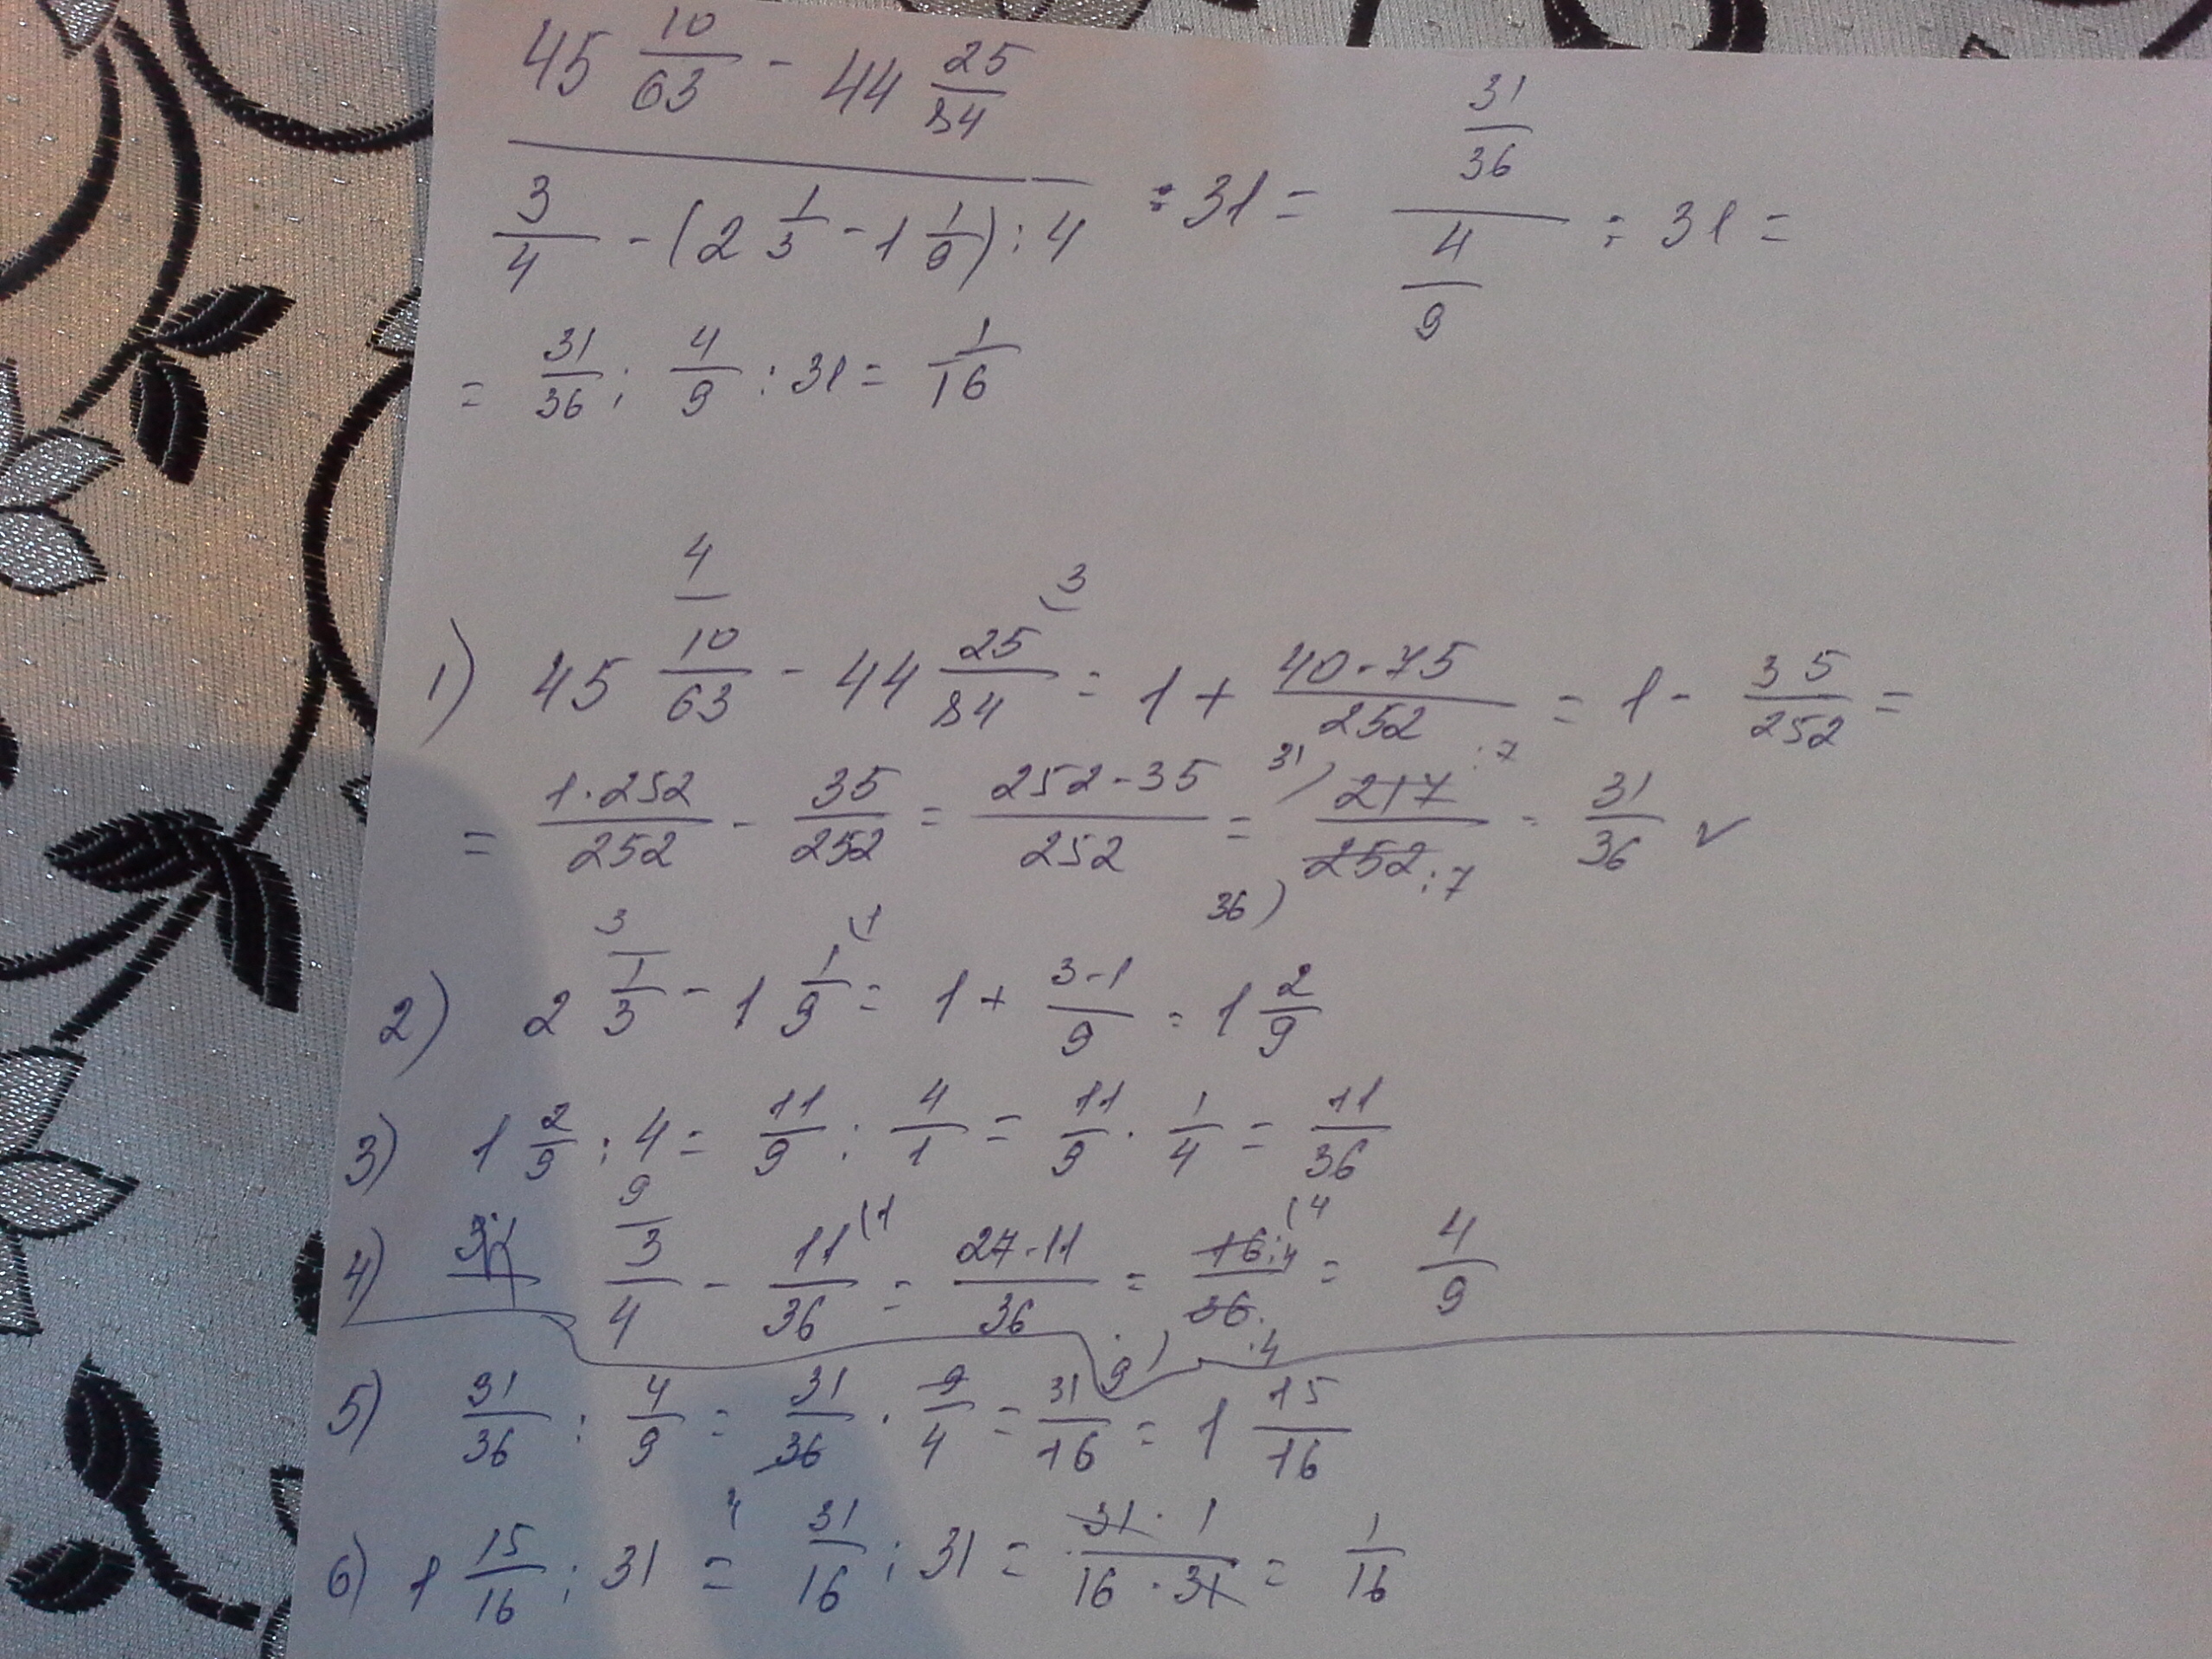 (45 10/63 - 44 25/84) / (3/4 - (2 1/3 - 1 1/9) : 4) : 31 = (31/36) / (4/9) : 31 =
= 31/36 : 4/9 : 31 = 1/16
4 3
1) 45 10/63 - 44 25/84 = 1 + (40-75)/252 = 1 - 35/252 =
= 1·252/252 - 35/252 = (252-35)/252 = 31) 217:7 / 36) 252:7 = 31/36 ✓
3 (1
2) 2 1/3 - 1 1/9 = 1 + (3-1)/9 = 1 2/9
3) 1 2/9 : 4 = 11/9 : 4/1 = 11/9 · 1/4 = 11/36
9 (1 (4
4) 3/4 - 11/36 = (27-11)/36 = 16:4 / 36:4 = 4/9
9)
5) 31/36 : 4/9 = 31/36 · 9/4 = 31/16 = 1 15/16
4
6) 1 15/16 : 31 = 31/16 : 31 = (31 · 1)/(16 · 31) = 1/16